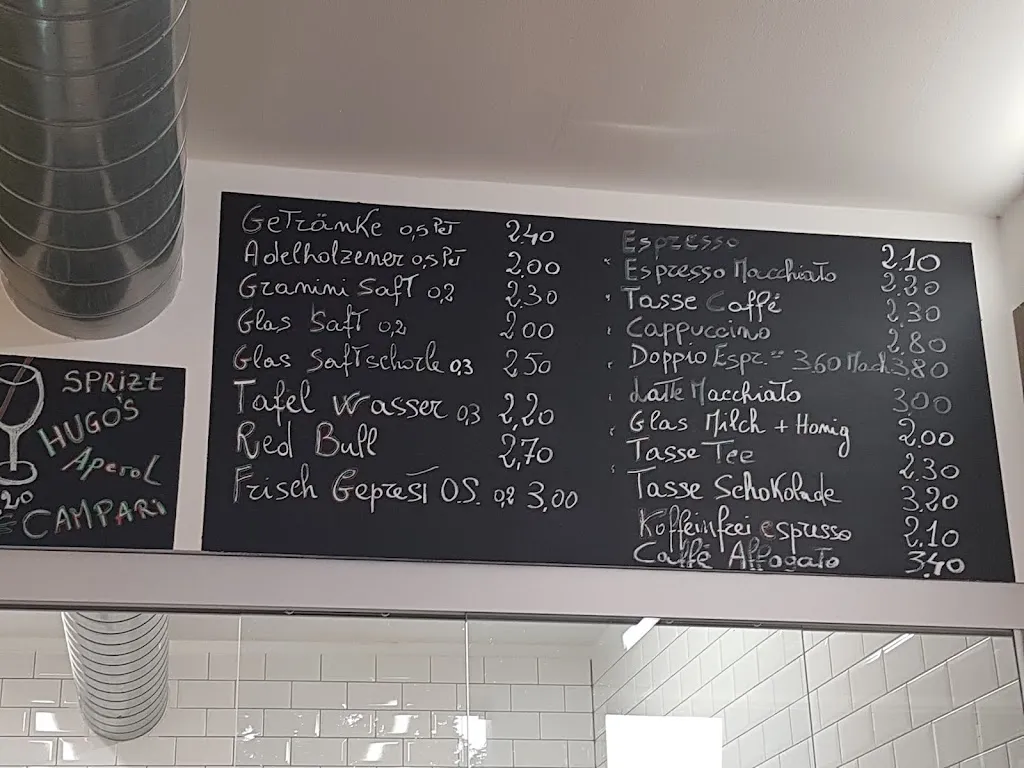 Getränke 0,5 Pet 2,40
Adelholzener 0,5 Pet 2,00
Granini Saft 0,2 2.30
Glas Saft 0,2 2,00
Glas Saftschorle 0,3 2,50
Tafel Wasser 0,3 2,20
Red Bull 2,70
Frisch Gepresst O.S. 0,2 3,00
Espresso 2.10
Espresso Macchiato 2.20
Tasse Caffé 2.30
Cappuccino 2.80
Doppio Espr. 3.60 Mach 3.80
Latte Macchiato 3,00
Glas Milch + Honig 2,00
Tasse Tee 2.30
Tasse Schokolade 3,20
Koffeinfrei espresso 2.10
Caffé Affogato 3,40
SPRIZT
HUGO'S
Aperol
CAMPARI